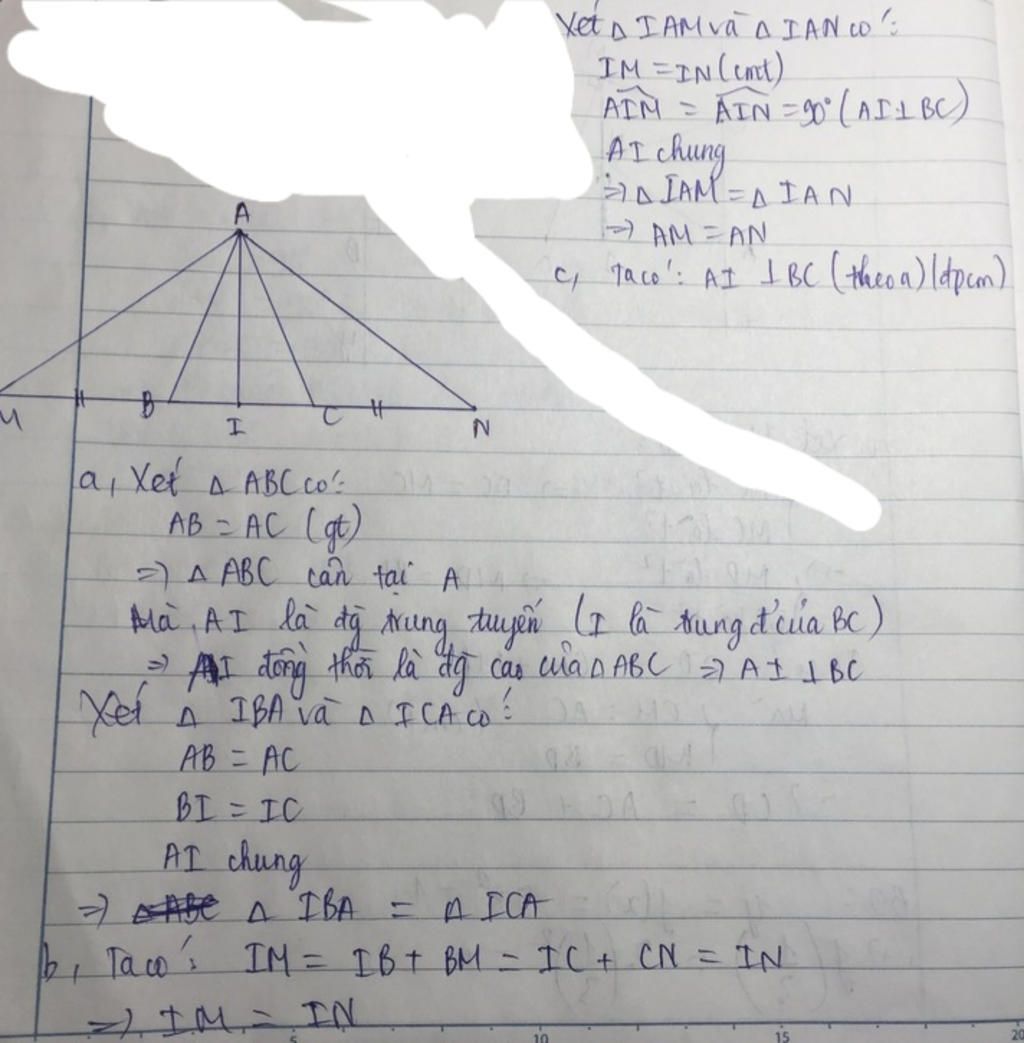 A
M
B
I
C
N
a, Xét Δ ABC có:
AB = AC (gt)
=> Δ ABC cân tại A
Mà AI là đg trung tuyến (I là trung đ' của BC)
=> AI đồng thời là đg cao của Δ ABC => AI ⊥ BC
Xét Δ IBA và Δ ICA có:
AB = AC
BI = IC
AI chung
=> Δ IBA = Δ ICA
b, Ta có: IM = IB + BM = IC + CN = IN
=> IM = IN
Xét Δ IAM và Δ IAN có:
IM = IN (cmt)
AIM = AIN = 90° (AI ⊥ BC)
AI chung
=> Δ IAM = Δ IAN
=> AM = AN
c, Ta có: AI ⊥ BC (theo a) (đpcm)
5 10 15 20